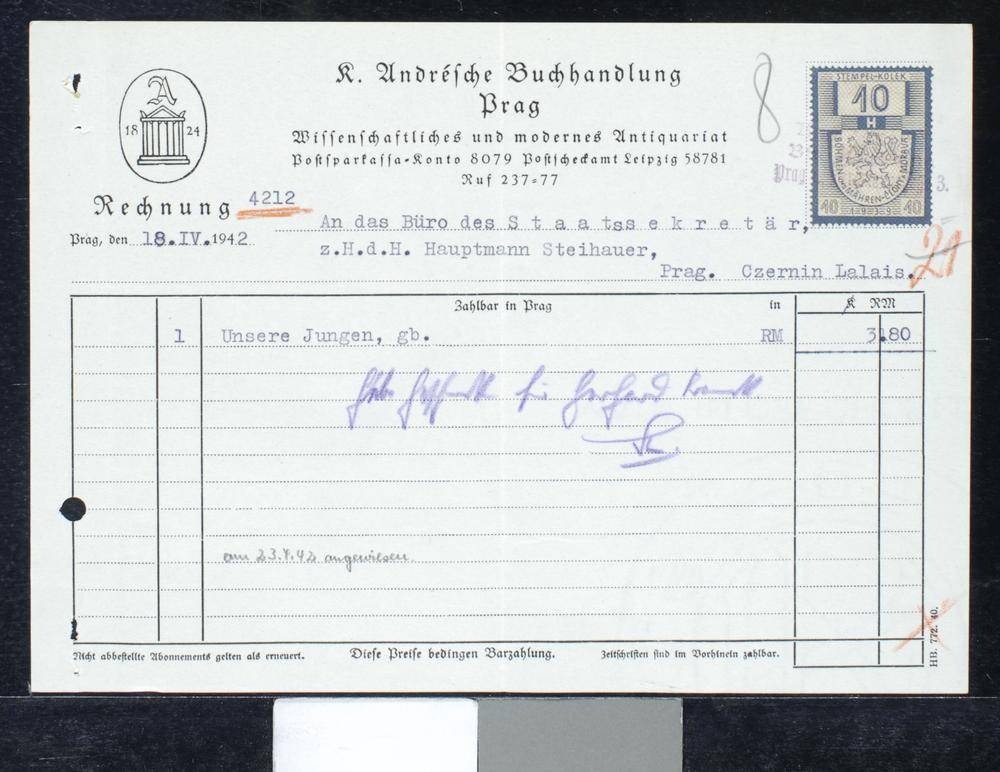 K. Andrésche Buchhandlung
Prag
Wissenschaftliches und modernes Antiquariat
Postsparkassa-Konto 8079 Postscheckamt Leipzig 58781
Ruf 237-77
A
18 24
8
STEMPEL-KOLEK
10
H
BÖHMEN UND MÄHREN-ČECHY A MORAVA
40 1939 40
Prag
3.
Rechnung 4212
Prag, den 18.IV.1942
An das Büro des Staatssekretär,
z.H.d.H. Hauptmann Steihauer,
Prag. Czernin Lalais.
21
Zahlbar in Prag in K RM
1 Unsere Jungen, gb. RM 3.80
für Gerhard
am 23.4.42 angewiesen.
Nicht abbestellte Abonnements gelten als erneuert.
Diese Preise bedingen Barzahlung.
Zeitschriften sind im Vorhinein zahlbar.
HB. 772. 40.